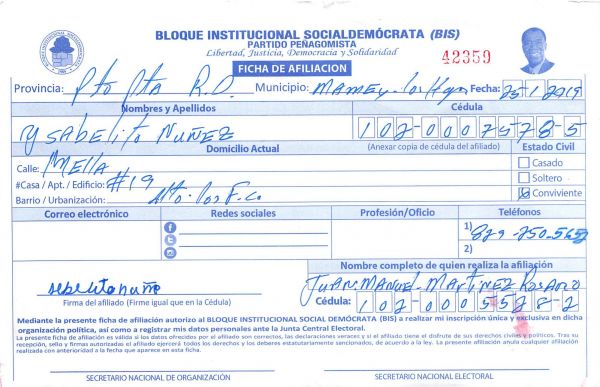 BLOQUE INSTITUCIONAL SOCIALDEMÓCRATA (BIS)
PARTIDO PEÑAGOMISTA
Libertad, Justicia, Democracia y Solidaridad
42359
FICHA DE AFILIACION
Provincia: Pto Pta R.D. Municipio: MAMEY-Los Hgos Fecha: 25-1-2019
Nombres y Apellidos Cédula
YSABELITO NUÑEZ 102-0007578-5
Domicilio Actual (Anexar copia de cédula del afiliado) Estado Civil
Calle: MELLA Casado
#Casa / Apt. / Edificio: #19 Soltero
Barrio / Urbanización: Conviviente
Correo electrónico Redes sociales Profesión/Oficio Teléfonos
1) 829-750-5652
2)
Nombre completo de quien realiza la afiliación
JUAN MANUEL MARTINEZ ROSARIO
Firma del afiliado (Firme igual que en la Cédula) Cédula: 102-0005528-2
Mediante la presente ficha de afiliación autorizo al BLOQUE INSTITUCIONAL SOCIAL DEMÓCRATA (BIS) a realizar mi inscripción única y exclusiva en dicha
organización política, así como a registrar mis datos personales ante la Junta Central Electoral.
La presente ficha de afiliación es válida si los datos ofrecidos por el afiliado son correctos, las declaraciones veraces y si el afiliado tiene el disfrute de sus derechos civiles y políticos. Tras su
recepción, sello y firmas autorizadas el afiliado ejercerá todos los derechos y los deberes estatutariamente sancionados, de acuerdo a la ley. La presente afiliación anula cualquier afiliación
realizada con anterioridad a la fecha que aparece en esta ficha.
SECRETARIO NACIONAL DE ORGANIZACIÓN SECRETARIO NACIONAL ELECTORAL